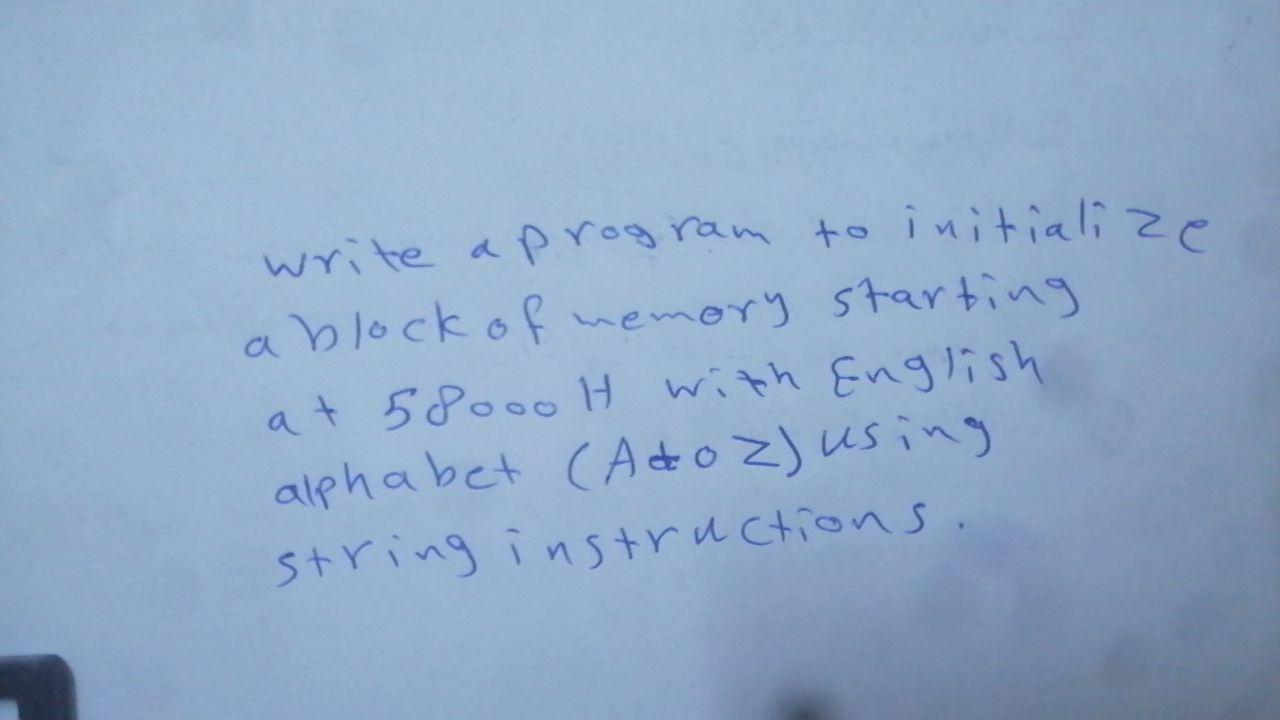 write a program to initialize
a block of memory starting
at 58000H with English
alphabet (A to Z) using
string instructions.